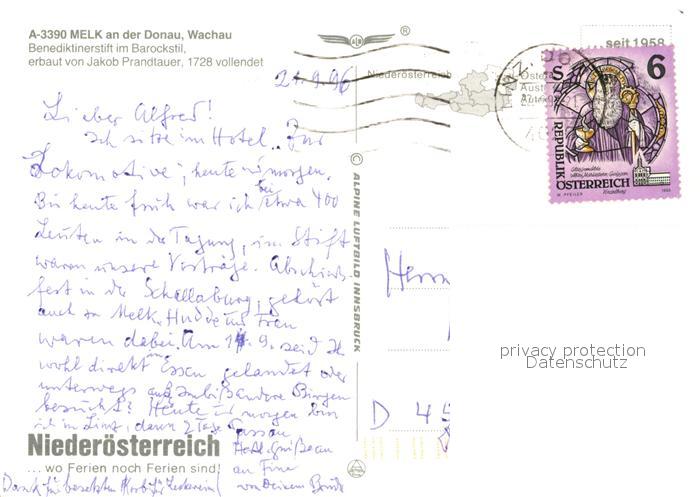 A-3390 MELK an der Donau, Wachau
Benediktinerstift im Barockstil,
erbaut von Jakob Prandtauer, 1728 vollendet
21.9.96
Lieber Alfred!
Ich sitze im Hotel „Zur
Lokomotive", heute und morgen.
Bis heute früh war ich bei etwa 400
Leuten in der Tagung, im Stift
waren unsere Vorträge. Abschieds-
fest in der Schallaburg, gehört
auch zu Melk. und Frau
waren dabei. Am 9. seid Ihr
wohl direkt in Essen gelandet oder
unterwegs
besucht? Heute und morgen bin
ich in Linz, dann 2 Tage Passau
Herzl. Grüße an
von Deinem
Dank für
Niederösterreich
... wo Ferien noch Ferien sind!
© ALPINE LUFTBILD INNSBRUCK
®
Niederösterreich
seit 1958
S 6
REPUBLIK
ÖSTERREICH
Herrn
D 45
privacy protection
Datenschutz